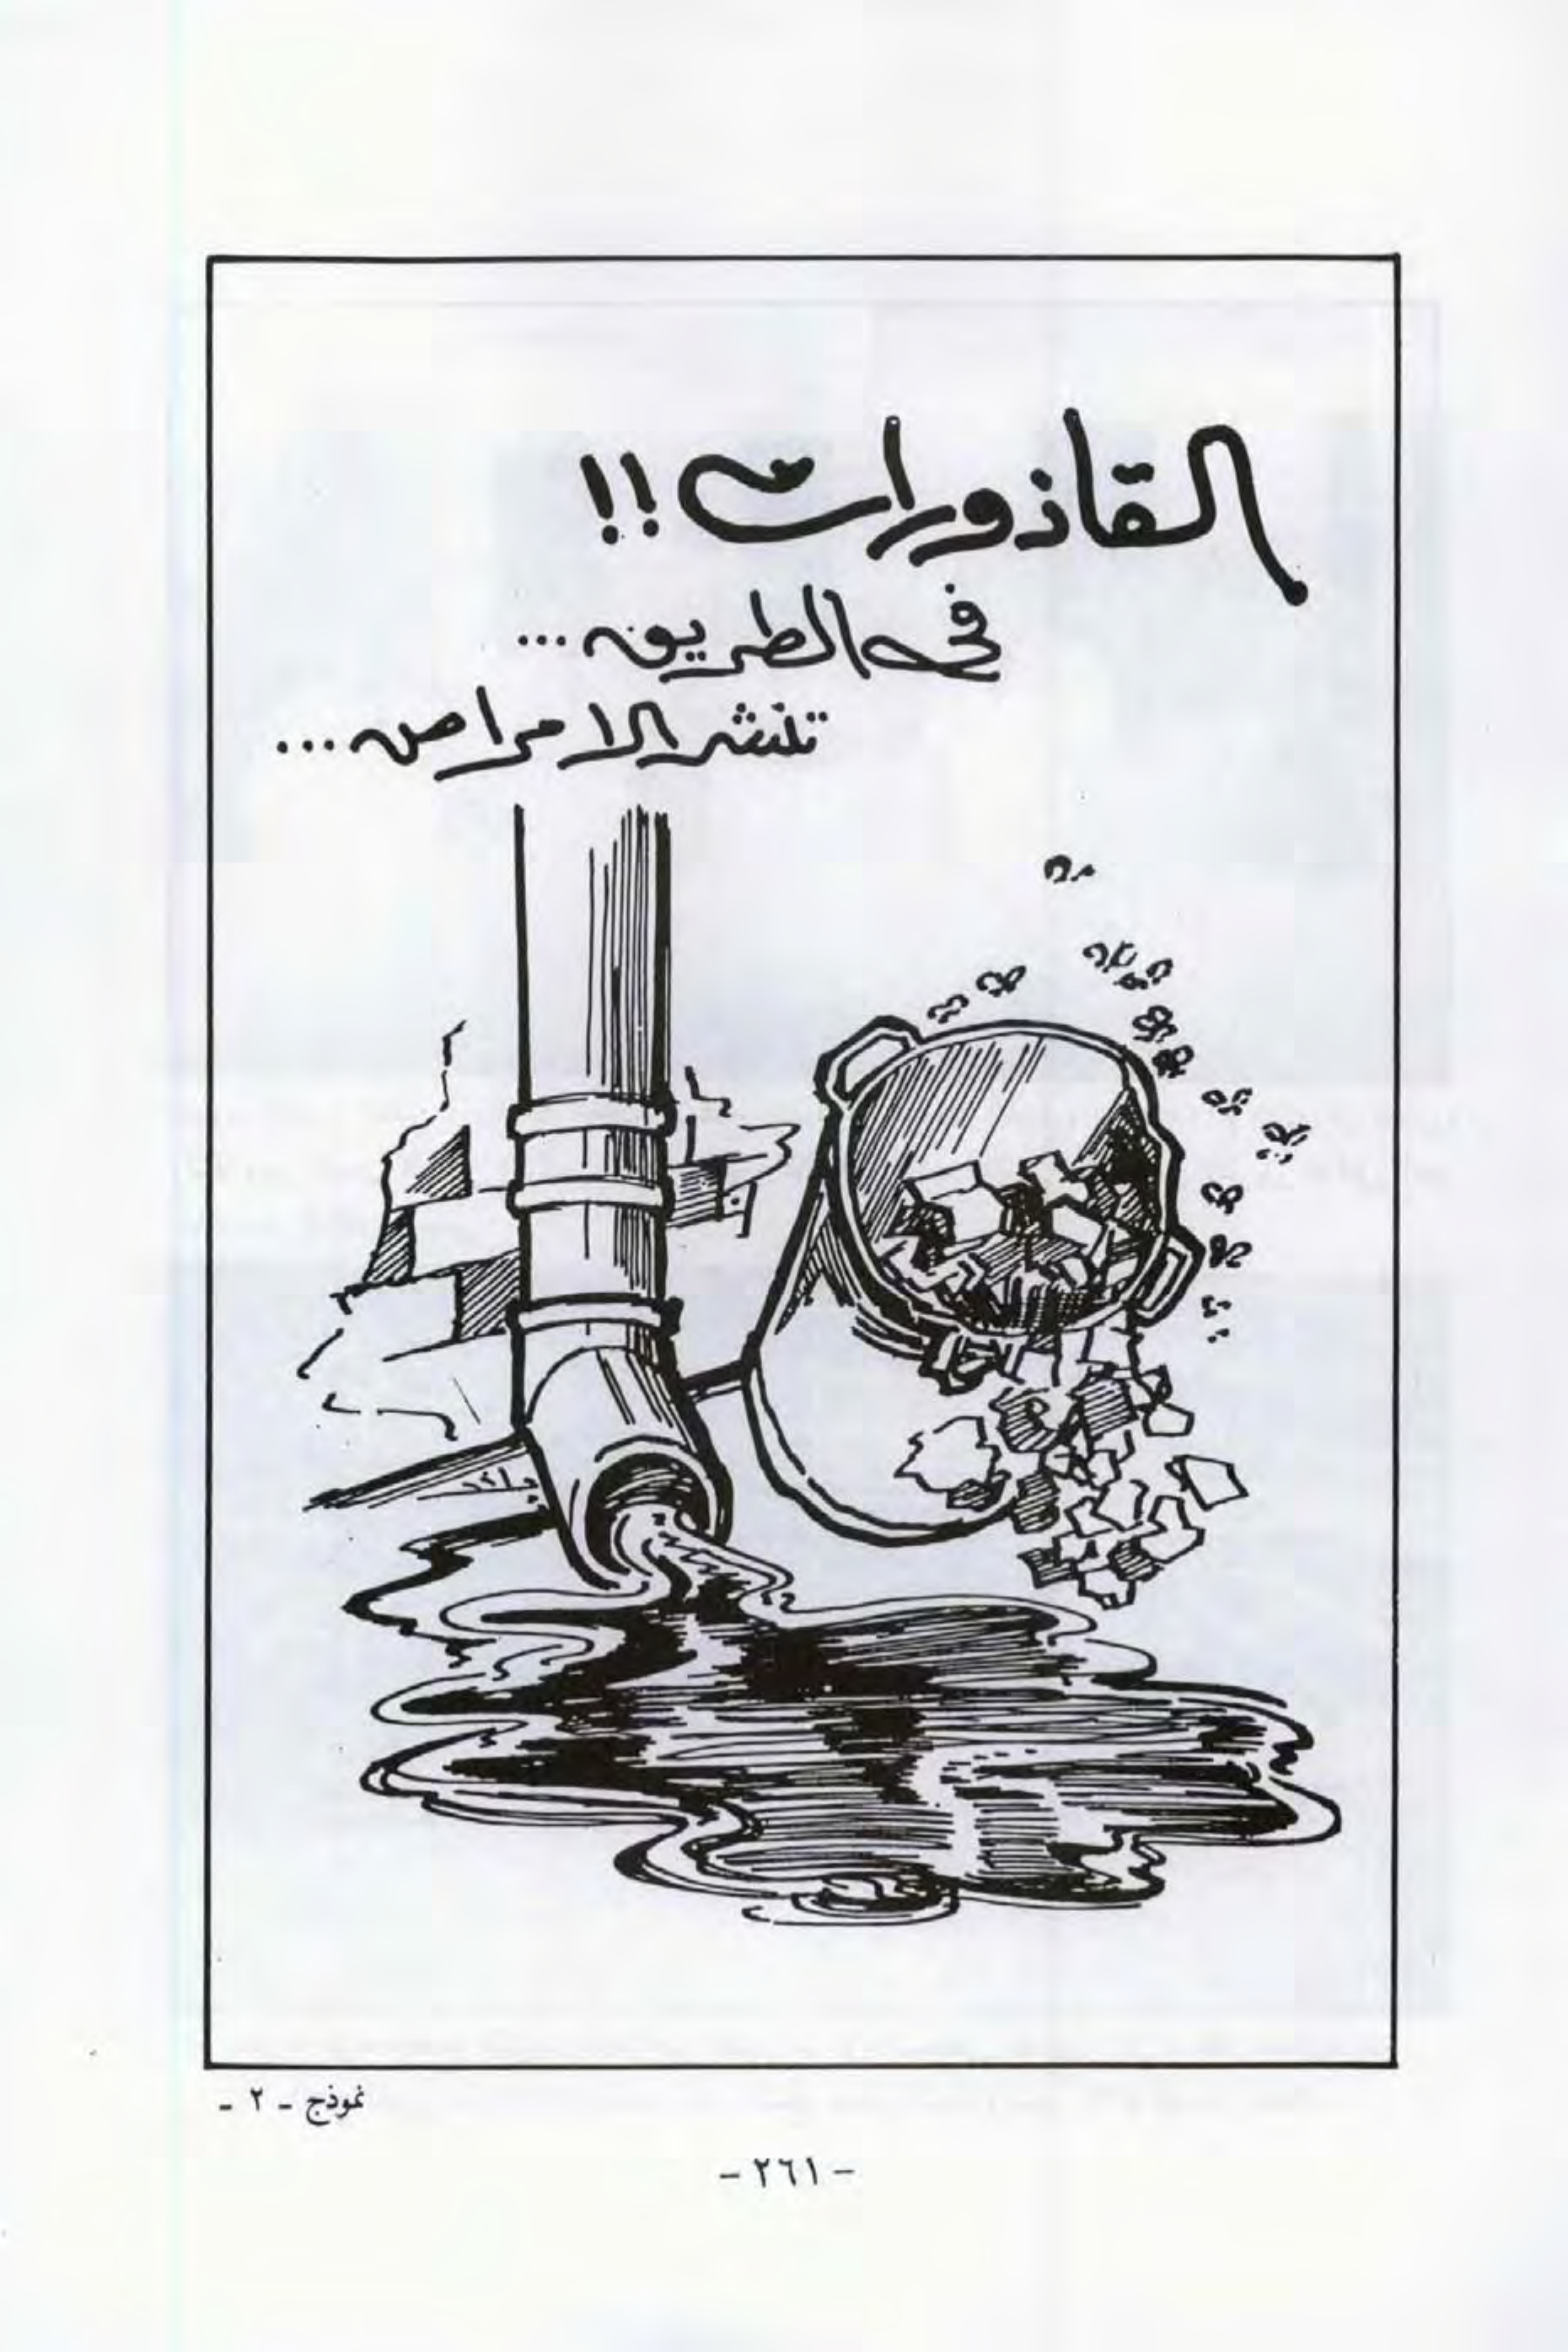 القاذورات !!
فى الطريق ...
تنشر الامراض ...
نموذج - ٢ -
- ٢٦١ -